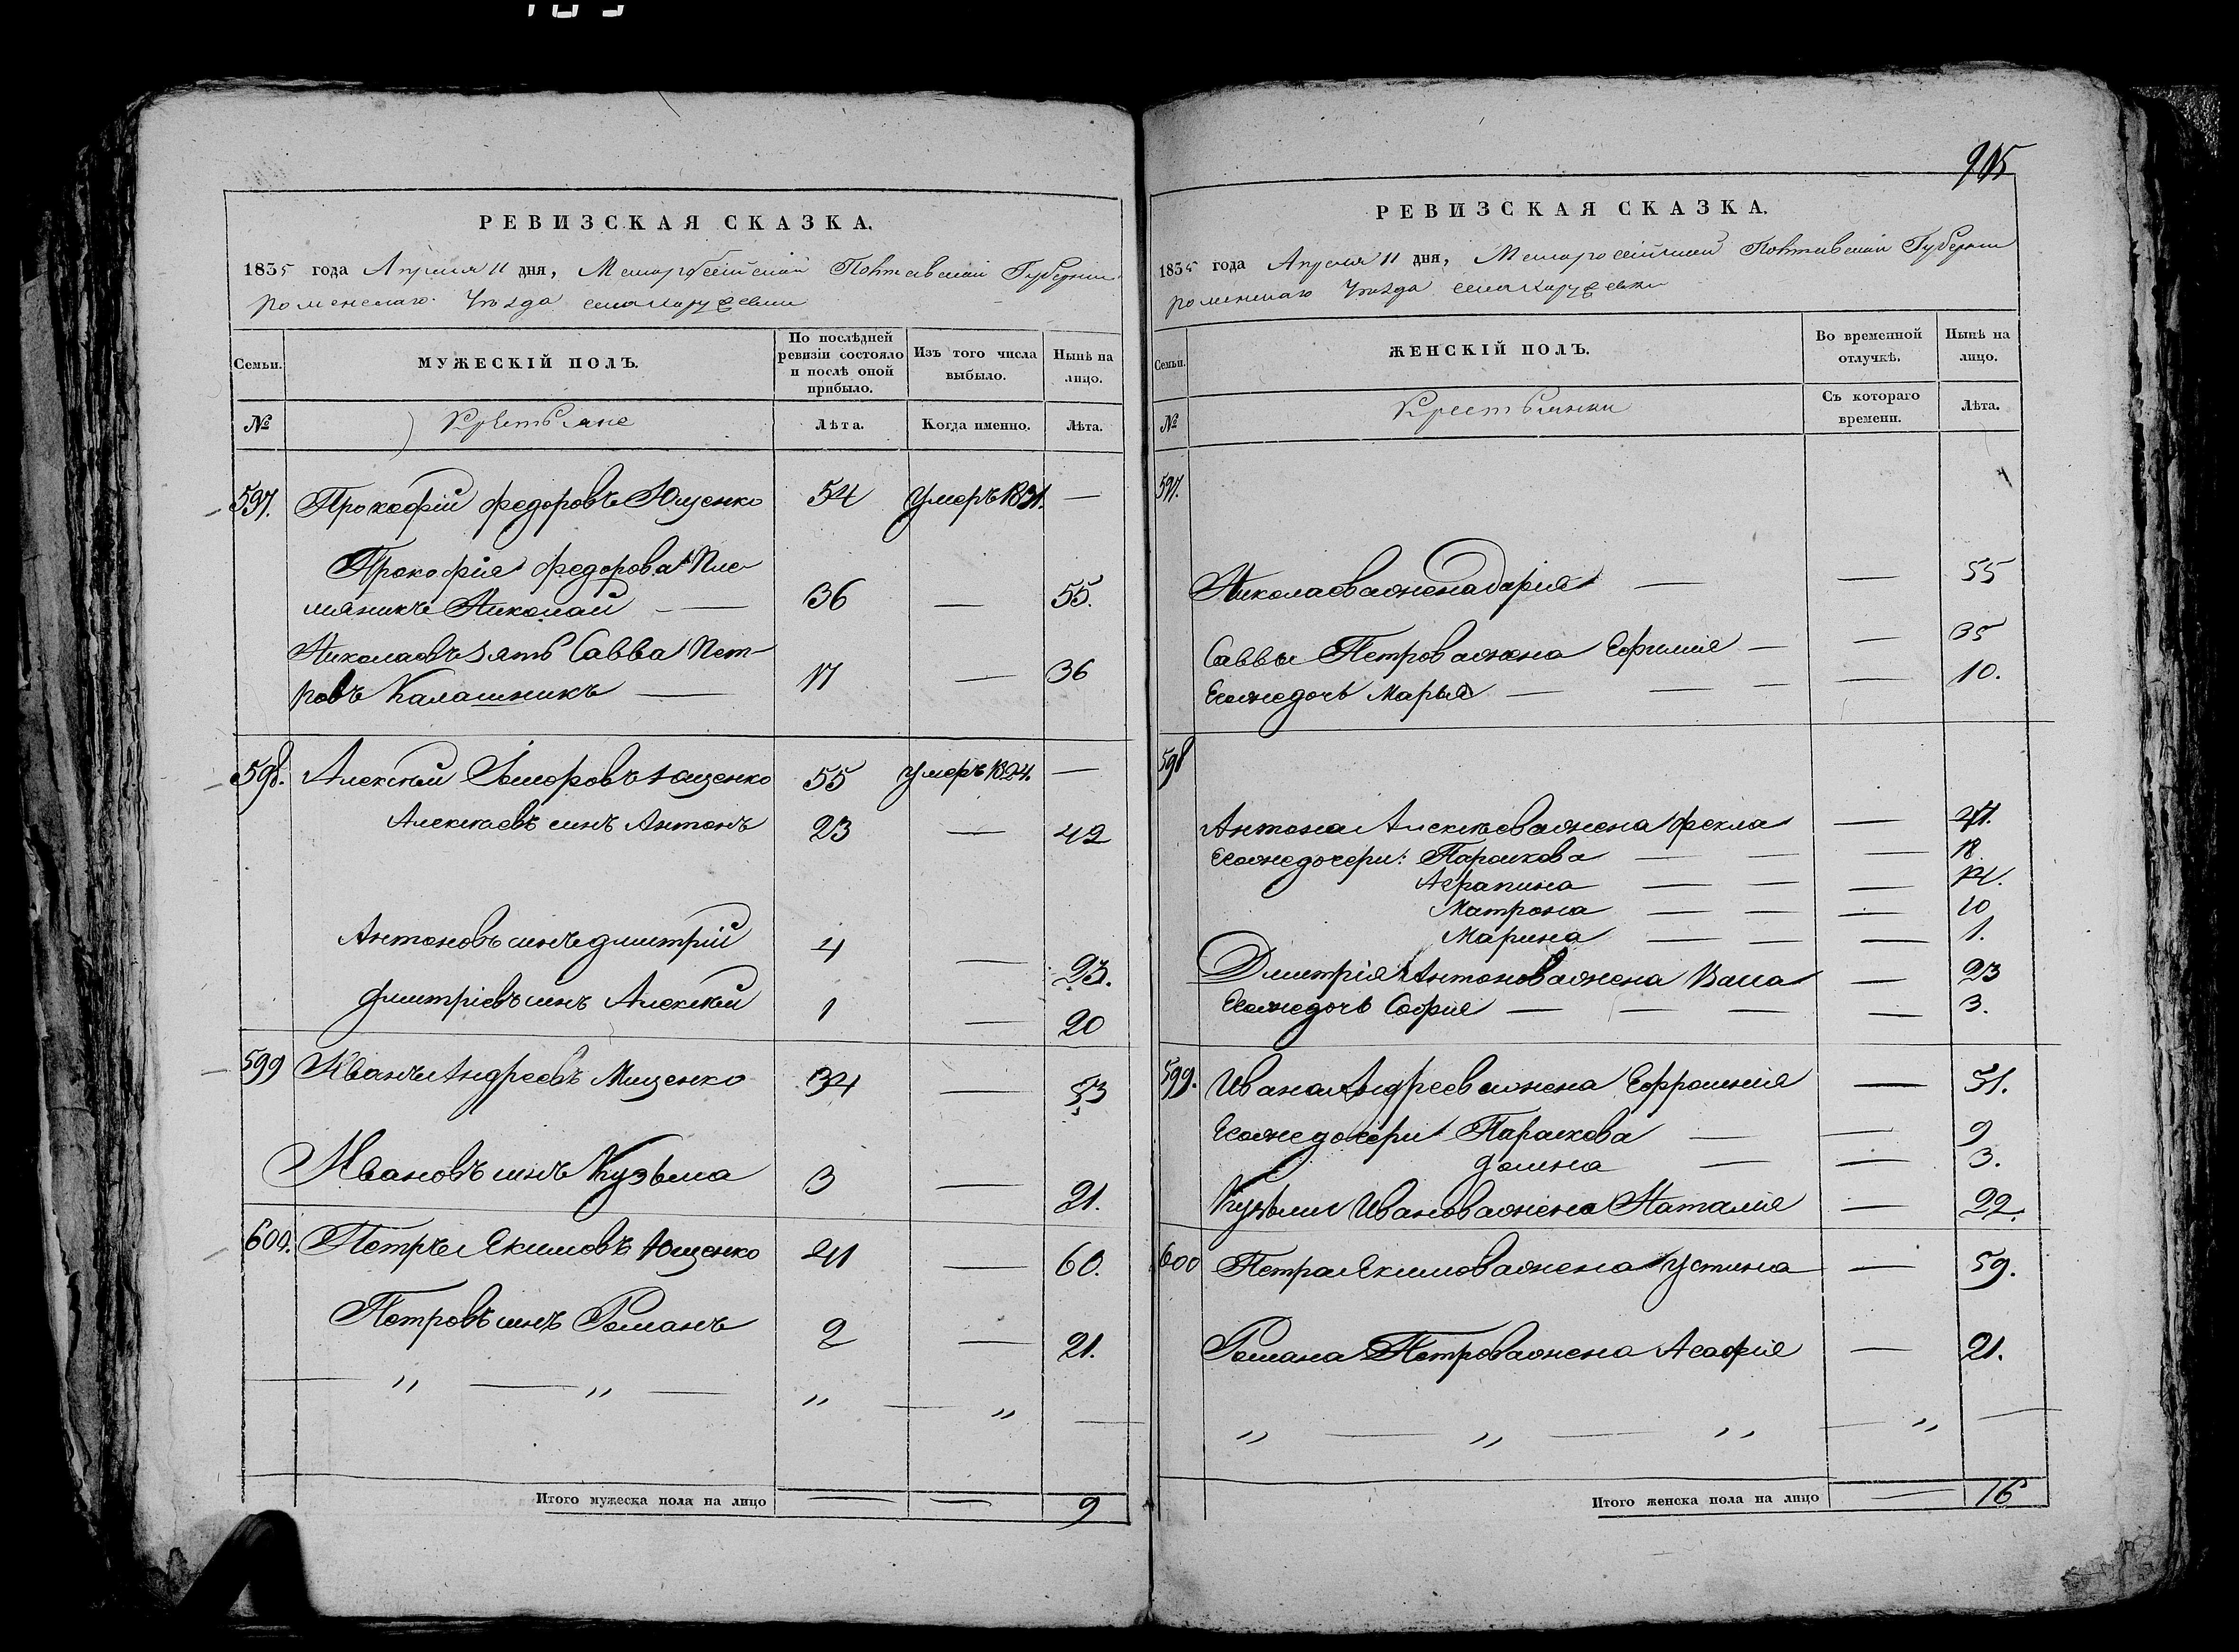 915
РЕВИЗСКАЯ СКАЗКА.
1835 года Апреля 11 дня, Малороссійской Полтавской Губерніи
Роменскаго Уѣзда села
МУЖЕСКІЙ ПОЛЪ.
Семьи.
По послѣдней ревизіи состояло и послѣ оной прибыло.
Изъ того числа выбыло.
Нынѣ на лицо.
№
Крестьяне
Лѣта.
Когда именно.
Лѣта.
597. Прокофій Федоровъ Ющенко 54 умеръ 1831. —
Прокофія Федорова Пле-
мяникъ Николай — 36 — 55.
Николаевъ зять Савва Пет-
ровъ Калашникъ — 17 — 36
598. Алексѣй Ющенко 55 умеръ 1824. —
Алексѣевъ сынъ Антонъ 23 — 42
Антоновъ сынъ Дмитрій 4 — 23.
Дмитріевъ сынъ Алексѣй 1 — 20
599 Иванъ Андреевъ Мищенко 34 — 53
Ивановъ сынъ Кузьма 3 — 21.
600. Петръ Якимовъ Ющенко 41 — 60.
Петровъ сынъ Романъ 2 — 21.
— " — " — " — " —
Итого мужеска пола на лицо — — 9
РЕВИЗСКАЯ СКАЗКА.
1835 года Апреля 11 дня, Малороссійской Полтавской Губерніи
Роменскаго Уѣзда села
Семьи.
ЖЕНСКІЙ ПОЛЪ.
Во временной отлучкѣ.
Нынѣ на лицо.
№
Крестьянки
Съ котораго времени.
Лѣта.
597.
Николаева жена Дарія — — 55
Саввы Петрова жена Ефимія — — 35
Его же дочь Марья — — — — 10.
598
Антона Алексѣева жена Фекла — 41.
Его же дочери: Параскова — — — 18
Аграпина — — — 14.
Матрона — — — 10
Марина — — — 1.
Дмитрія Антонова жена Васса — 23
Его же дочь Софія — — — — 3.
599. Ивана Андреева жена Ефросинія — 51.
Его же дочери Параскова — — 9
Домна — — 3.
Кузьмы Иванова жена Наталія — 22.
600 Петра Якимова жена Устина — 59.
Романа Петрова жена Агафія — 21.
" — " — " — " —
Итого женска пола на лицо — 16